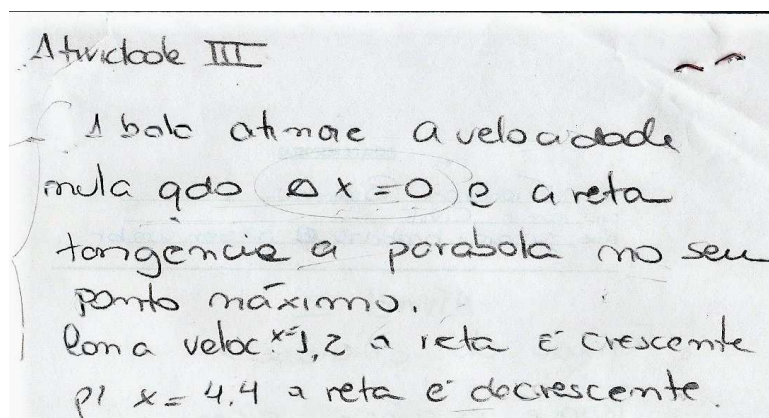 Atividade III
A bola atinge a velocidade
nula qdo Δx = 0 e a reta
tangência a parabola no seu
ponto máximo.
Com a veloc x=1,2 a reta é crescente
p/ x = 4,4 a reta e decrescente.